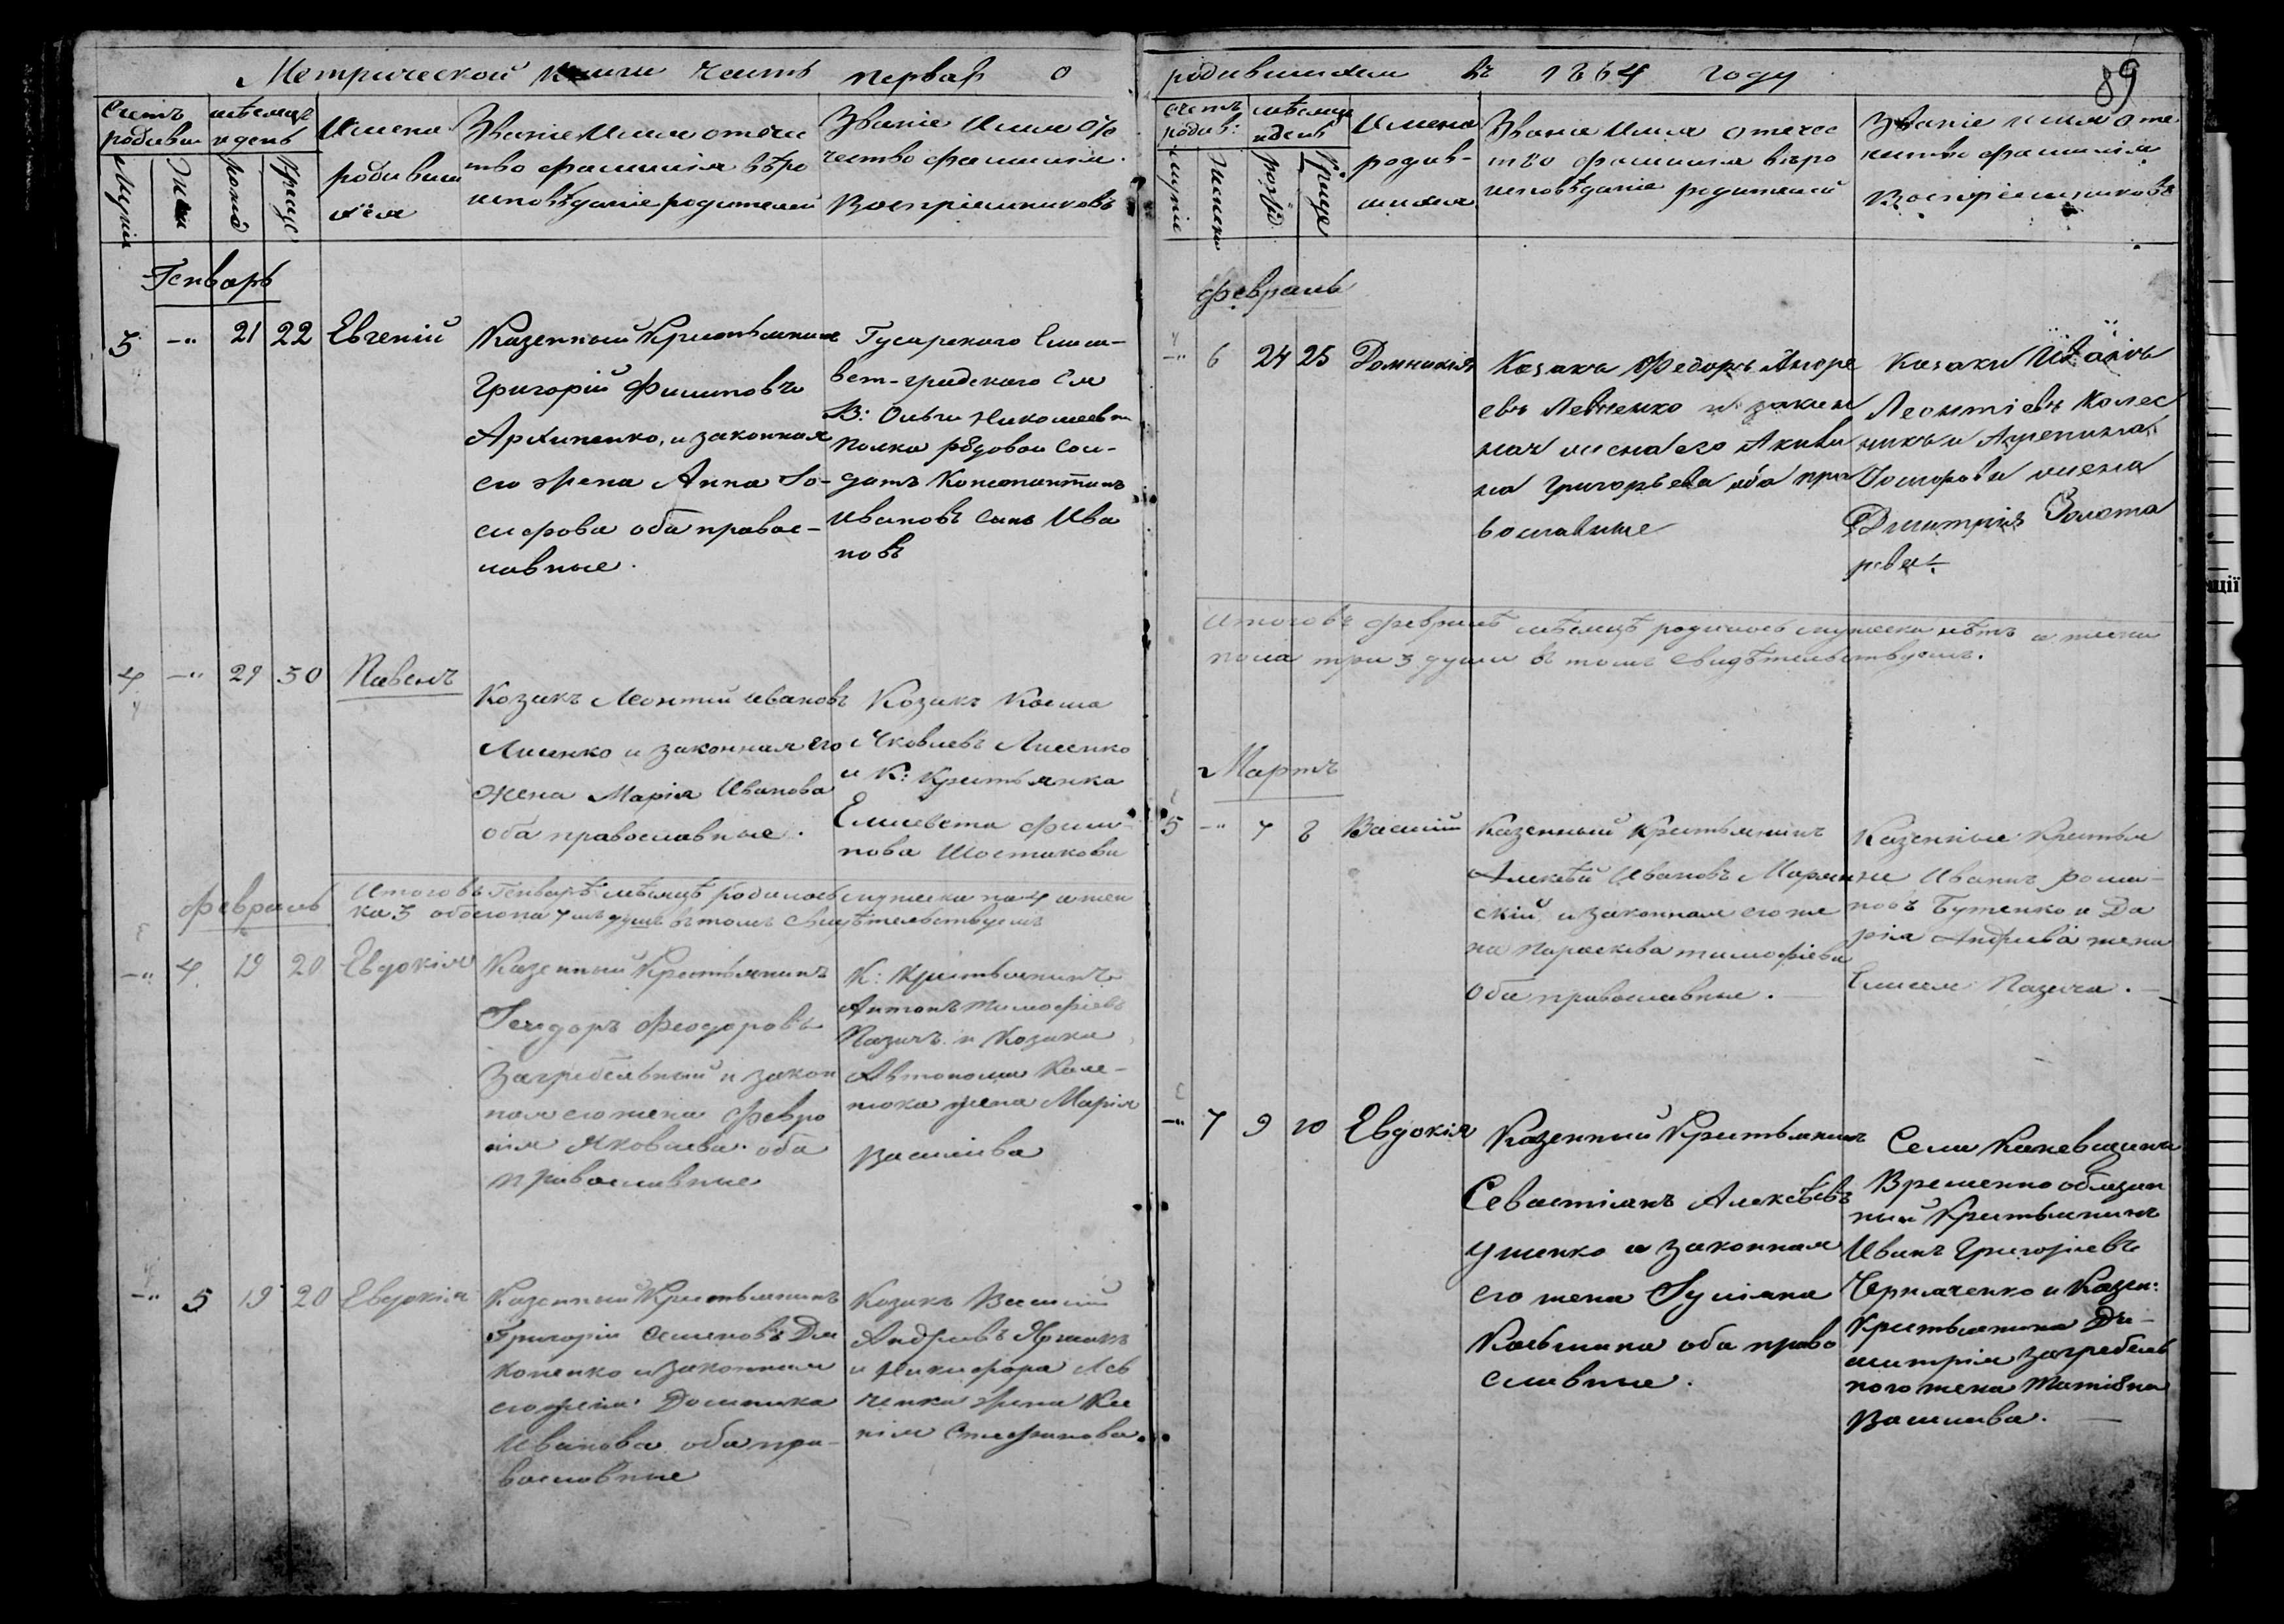 Метрической книги часть первая о
Счетъ родивш. мѣсяцъ и день
Имена родивш ихся
Званіе Имя отече
ство фамилія вѣро
исповѣданіе родителей
Званіе Имя о/т
чество фамилія
Воспріемниковъ
Генварь
5 -" 21 22 Евгеній
Казенный Крестьянинъ
Григорій Филиповъ
Архипенко, и законная
его жена Анна Іо-
сифова оба правос-
лавные.
Гусарского Елиса-
вет-градского Ея
В: Ольги Николаевн
полка рядовой сол-
датъ Константинъ
Ивановъ сынъ Ива
новъ
4 -" 29 30 Павелъ
Козакъ Леонтий Ивановъ
Лисенко и законная его
жена Марія Иванова
оба православные.
Козакъ Косма
Яковлевъ Лисенко
и К: Крестьянка
Елисавета Фили
пова Шостакова
Февраль
Итого въ Генварѣ мѣсяцѣ родилось мужеска пола 4 а жен
ска 3 обоего пола 7мъ душъ въ томъ свидѣтельствуемъ
-" 4 19 20 Евдокія
Казенный Крестьянинъ
Феодоровъ
Загребельный и закон
ная его жена Февро
нія Яковлева оба
православные
К: Крестьянинъ
Антонъ Тимофѣевъ
Пазичъ и Козака
Автонома Кале-
нюка жена Марія
Василіева
-" 5 19 20 Евдокія
Казенный Крестьянинъ
Григорій Семеновъ Дья
коненко и законная
его жена Домника
Иванова оба пра-
вославные
Козакъ Василій
Андреевъ Ярмакъ
и Никифора Лев
ченка жена Ксе
нія Стефанова
родившихся въ 1864 году
89
счетъ родив: мѣсяцъ и день
Имена родив- шихся
Званіе Имя отечес
тво фамилія вѣро
исповѣданіе родителей
Званіе имя оте
чество фамилія
Воспріемниковъ
Февраль
-" 6 24 25 Домникія
Козакъ Федоръ Андре
евъ Левченко и закон
ная жена его Акили
на Григорьева оба пра
вославные
Козаки Иванъ
Леонтіевъ Колес
никъ и Агрепина
жена
Дмитрія Золота
рева
Итого въ Февралѣ мѣсяцѣ родилось мужеска нѣтъ а женска
пола три 3 души въ томъ свидѣтельствуемъ.
Мартъ
5 -" 7 8 Василій
Казенный Крестьянинъ
Алексѣй Ивановъ
и законная его же
на Параскева Тимофіева
Оба православные.
Казенные Крестья
не Иванъ Рома-
новъ Бутенко и Да
рія Андреева жена
Елисея Пазича.
-" 7 9 10 Евдокія
Казенный Крестьянинъ
Севастіянъ Алексѣевъ
Ященко и законная
его жена Іуліяна
Косьмина оба право
славные.
Села Каневщины
Временно обязан
ный Крестьянинъ
Иванъ Григоріевъ
Черначенко и Казен:
Крестьянина Ди-
митрія Загребель
ного жена Татіяна
Василіева.